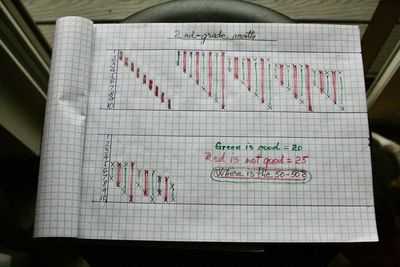 2nd-grade math
1
2
3
4
5
6
7
8
9
10
1
2
3
4
5
6
7
8
9
10
Green is good = 20
Red is not good = 25
Where is the 50-50?